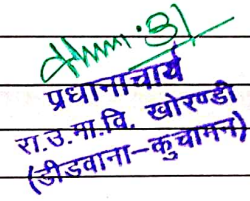 प्रधानाचार्य
रा.उ.मा.वि. खोरण्डी
(डीडवाना-कुचामन)